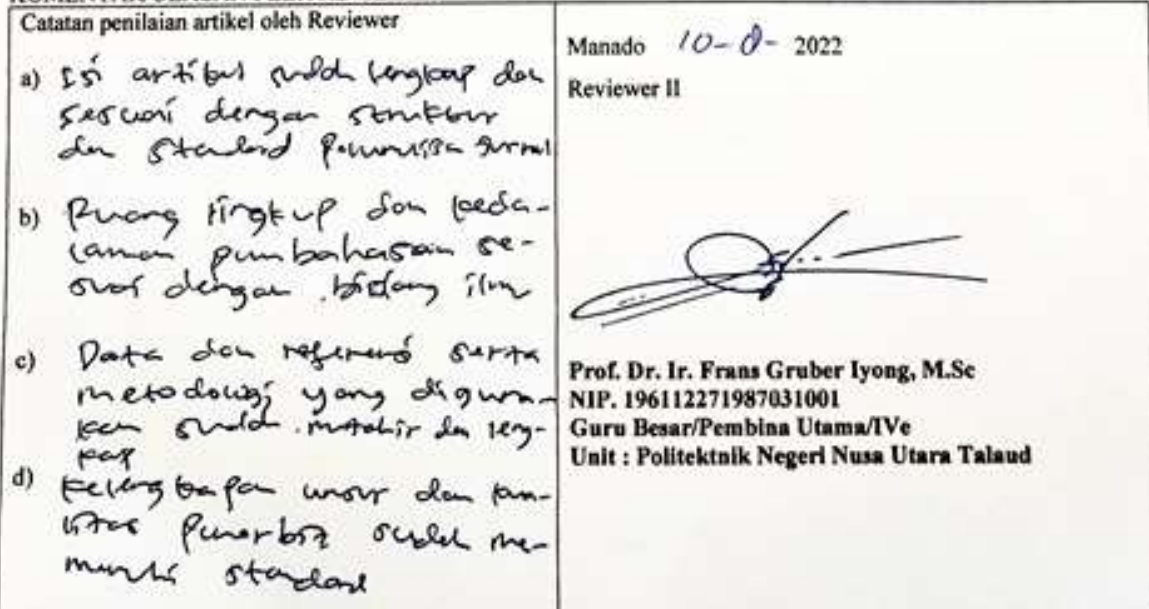 Catatan penilaian artikel oleh Reviewer
a) Isi artikel sudah lengkap dan
sesuai dengan struktur
dan standard penulisan jurnal
b) Ruang lingkup dan keda-
laman pembahasan se-
suai dengan bidang ilmu
c) Data dan referensi serta
metodologi yang diguna-
kan sudah mutahir dan leng-
kap
d) Kelengkapan unsur dan kua-
litas penerbit sudah me-
menuhi standard
Manado 10- - 2022
Reviewer II
Prof. Dr. Ir. Frans Gruber Iyong, M.Sc
NIP. 196112271987031001
Guru Besar/Pembina Utama/IVe
Unit : Politektnik Negeri Nusa Utara Talaud